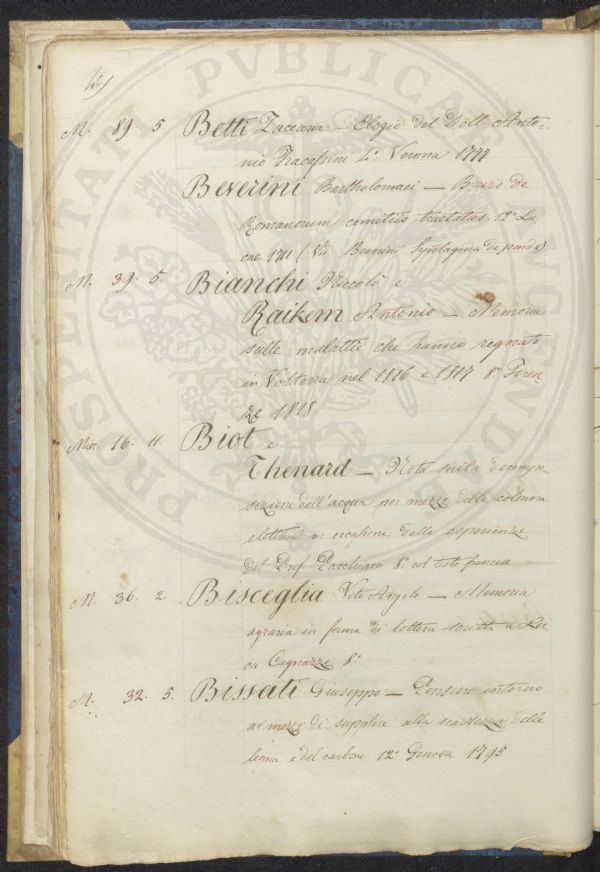 M. 89. 5. Betti Zaccaria – Elogio del Dott. Anto-
nio Fracassini 4° Verona 1777
Beverini Bartholomaei – Burs de
Romanorum comitiis tractatus 12° Lu
cae 1711 (V. Beverini Syntagma de pond.)
M. 39. 5. Bianchi Niccolò e
Raikem Antonio – Memoria
sulle malattie che hanno regnato
in Volterra nel 1816 e 1817 8° Firen-
ze 1818.
Mis. 16. 11. Biot e
Thenard – Nota sulla decompo
sizione dell'acqua per mezzo della colonna
elettrica in occasione delle esperienze
del Prof. Pacchiani 8° col testo francese
M. 36. 2. Bisceglia Vito Angelo – Memoria
agraria in forma di lettera scritta a Lu
ca Cagnazzi 8°
M. 32. 5. Bissati Giuseppe – Pensiere intorno
ai mezzi di supplire alla scarsezza della
legna e del carbone 12° Genova 1795
PROSPERITATI PUBLICAE AUGENDAE